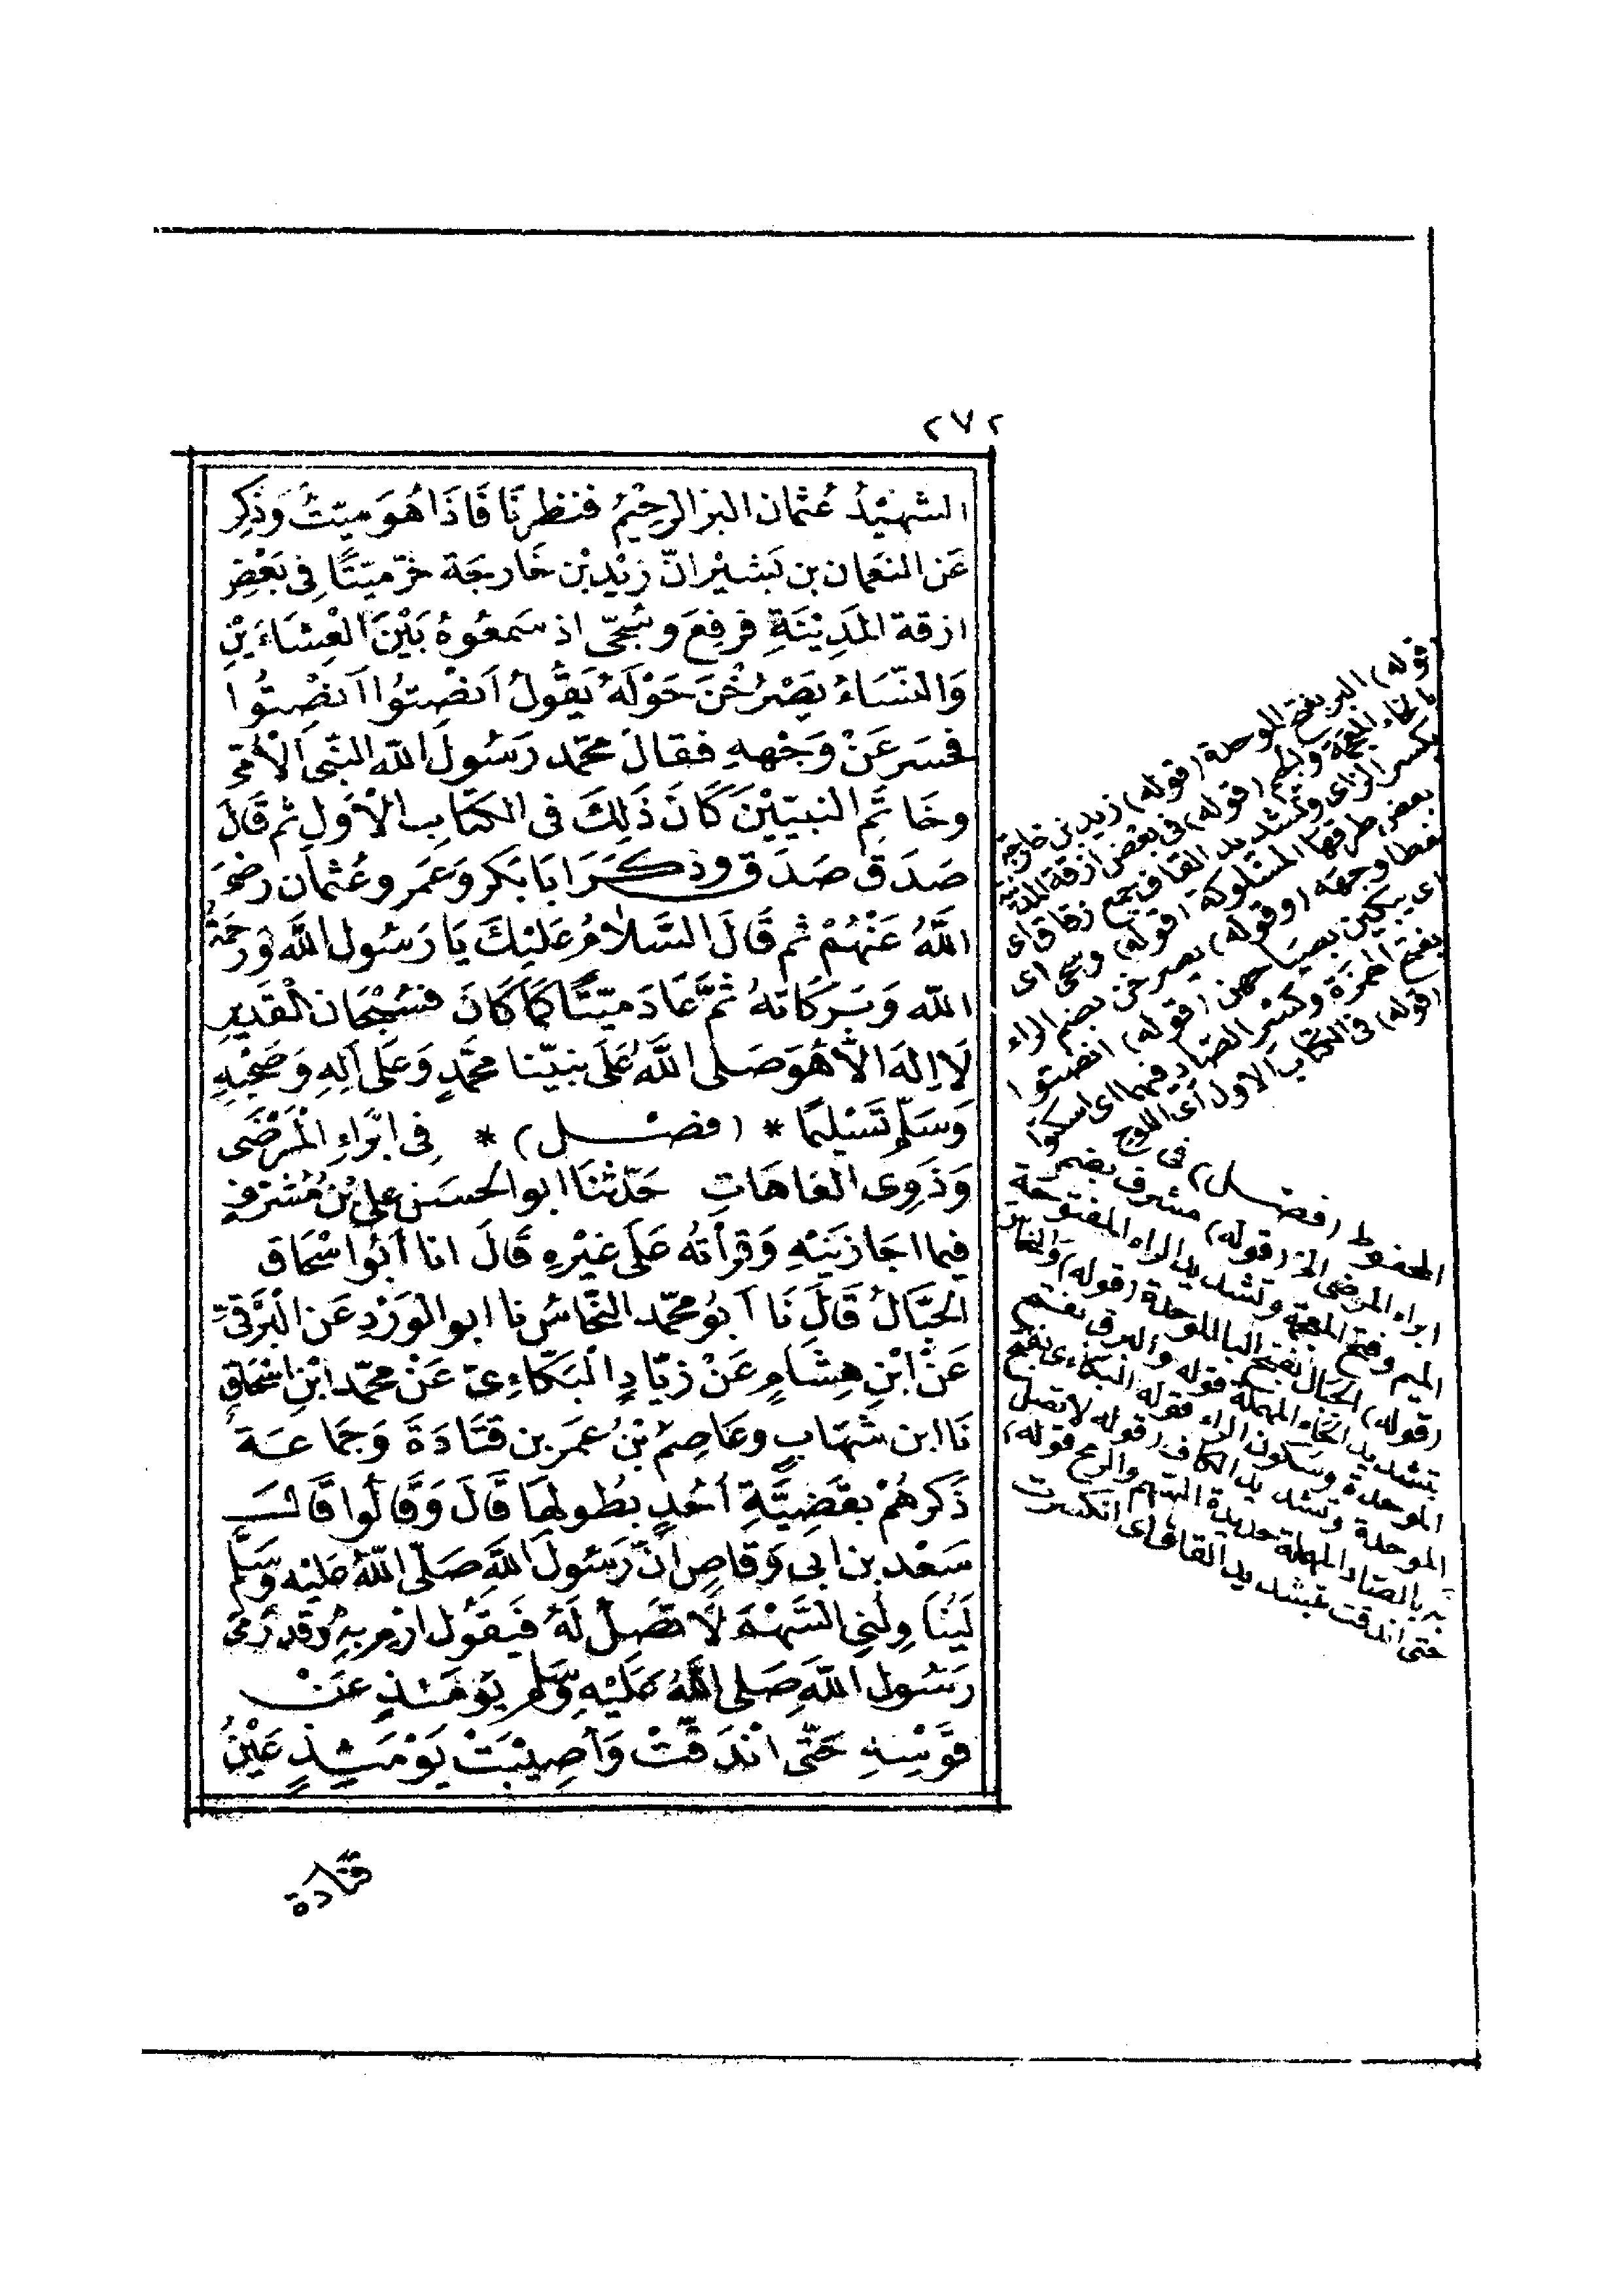 ٢٧٢
الشهيدُ عُثمان البرّ الرحيْمُ فنظرنَا فَاذَا هُوَ ميّتٌ وَذُكِر
عَن النعَمان بن بَشيْر انّ زيْد بْن خَارجَة خرّ ميّتًا فِى بَعْضِ
ازقة المَدِيْنَةِ فرفِعَ وسُجّى اذ سَمعُوهُ بَيْنَ الْعِشَاءَيْنِ
وَالنّسَاءُ يَصْرُخْنَ حَوْلَهُ يَقُولُ اَنْصِتُوا اَنْصِتُوا
فحسَر عَنْ وَجْههِ فقالَ محمّد رَسُولُ الله النّبى الْأمّى
وخَاتَمِ النبيّيْنَ كَانَ ذَلِكَ فى الكتَابِ الْأوَلِ ثم قَالَ
صَدَق صَدَق وذكَرَ ابَا بَكر وَعمَر وعُثمان رضىَ
اللَّهُ عَنْهُمْ ثم قَالَ السَّلامُ عَليْكَ يَا رَسُول اللَّه وَرَحْمَةُ
الله وَبَرَكَاتهُ ثمَّ عَادَ ميّتًا كَمَا كَانَ فسُبْحَان الْقَدِيرِ
لَا اِلهَ الاّ هُوَ صَلى اللَّهُ عَلَى نبيّنا محمَّدٍ وَعَلى اَلِهِ وَصَحْبِهِ
وَسَلّم تَسْليمًا * (فصْــل) * فِى ابْرَاءِ الْمَرْضَى
وَذَوِى العَاهَاتِ حَدّثنَا ابو الحسَن علىّ بْنُ مُشَرّفٍ
فيما اجَازنيْهِ وَقرأتهُ عَلَى غيْرِهِ قَالَ انا أبُو اسْحَاق
الحَبَّالُ قَالَ نَا اَبُو محمّد النحَّاسُ نا ابو الوَرْدِ عَن الْبَرْقىّ
عَنْ ابْنِ هِشَامٍ عَنْ زيَّادٍ الْبَكَّاءِىّ عَنْ محمّد ابْنِ اسْحَاق
نَا ابن شهَابٍ وعَاصِمُ بْنُ عمَر بن قتَادَةَ وَجَمَاعَة
ذَكَرهُمْ بقَضِيَّةِ اُحُدٍ بطُولهَا قَالَ وَقَالُوا قَالَ
سَعْد بن ابى وَقاصٍ انّ رَسُولَ اللَّهِ صَلّى اللَّهُ عَليْه وَسَلَّم
لَيُنَاوِلُنِى السَّهْمَ لَا نصْلَ لَهُ فَيَقُولُ ارْمِ بِهِ وَقد رَمى
رَسُول اللهِ صَلى اللَّهُ عَلَيْهِ وَسَلَّم يَوْمَئذٍ عَنْ
قَوْسِهِ حَتّى انْدَقّتْ وَاُصِيْبَتْ يَوْمَئِذٍ عَيْنُ
قتادة
(قوله) البر بفتح الموحدة (قوله) زيد بن خارجة
بالخاء المعجمة والجيم (قوله) فى بعض ازقة المدينة
بكسر الزاى وتشديد القاف جمع زقاق اى
بعض طرقها المسلوكة (قوله) وسجى اى
غطا وجهه (وقوله) يصرخن بضم الراء
اى يبكين بصياحهن (قوله) انصتوا
بفتح الهمزة وكسر الصاد فيهما اى اسكتوا
(قوله) فى الكتاب الاول اى اللوح
المحفوظ (فصــل) فى
ابراء المرضى الخ (قوله) مشرف بضم
الميم وفتح المعجمة وتشديد الراء المفتوحة
(قوله) الحبال بفتح البا الموحدة (قوله) والنحاس
بتشديد الحاء المهملة قوله والبرقى بفتح
الموحدة وسكون الراء فقوله البكاءى بفتح
الموحدة وتشديد الكاف (قوله لا نصل
به بالصاد المهملة حديدة السهم والرمح قوله)
حتى اندقت بتشديد القاف اى انكسرت